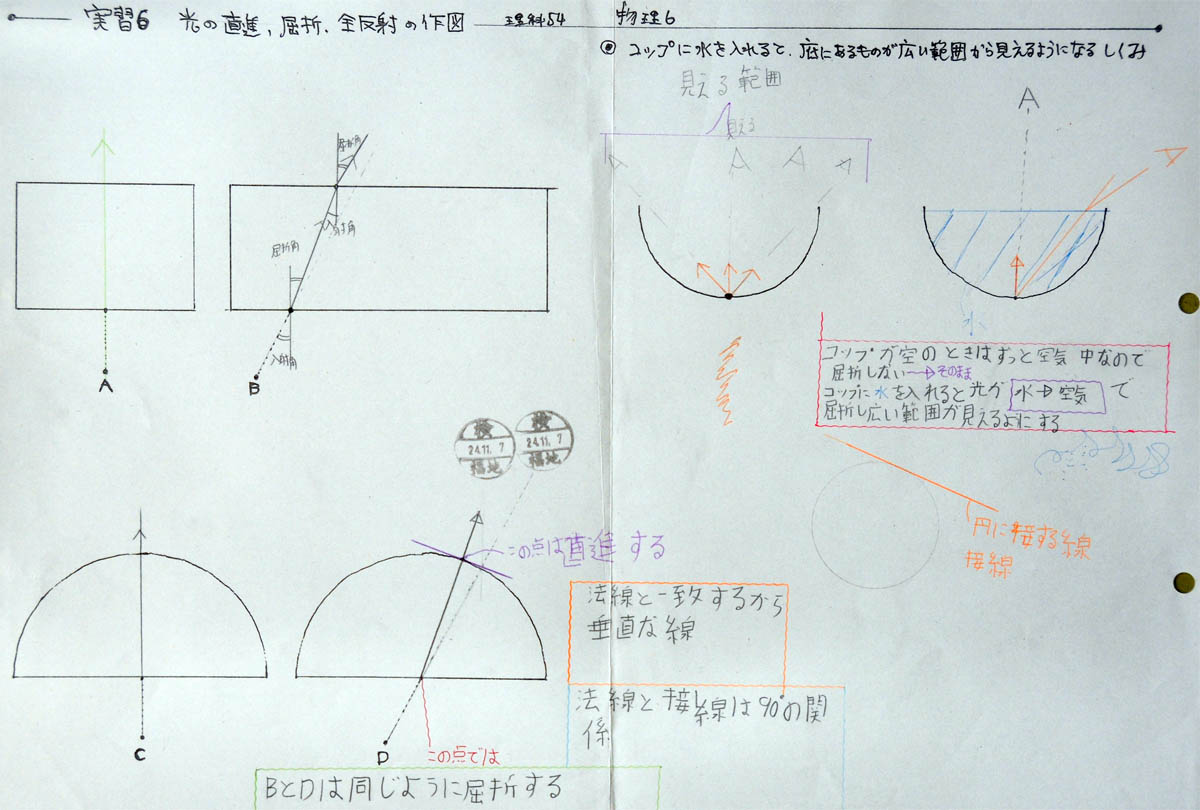 実習6 光の直進、屈折、全反射の作図 理科54 物理6
コップに水を入れると、底にあるものが広い範囲から見えるようになるしくみ
見える範囲
見える
A
屈折角
入射角
屈折角
入射角
A
B
水
コップが空のときはずっと空気中なので
屈折しない→そのまま
コップに水を入れると光が水→空気で
屈折し広い範囲が見えるよにする
検
24.11.7
福地
検
24.11.7
福地
円に接する線
接線
この点は直進する
法線と一致するから
垂直な線
法線と接線は90°の関
係
C
D
この点では
BとDは同じように屈折する